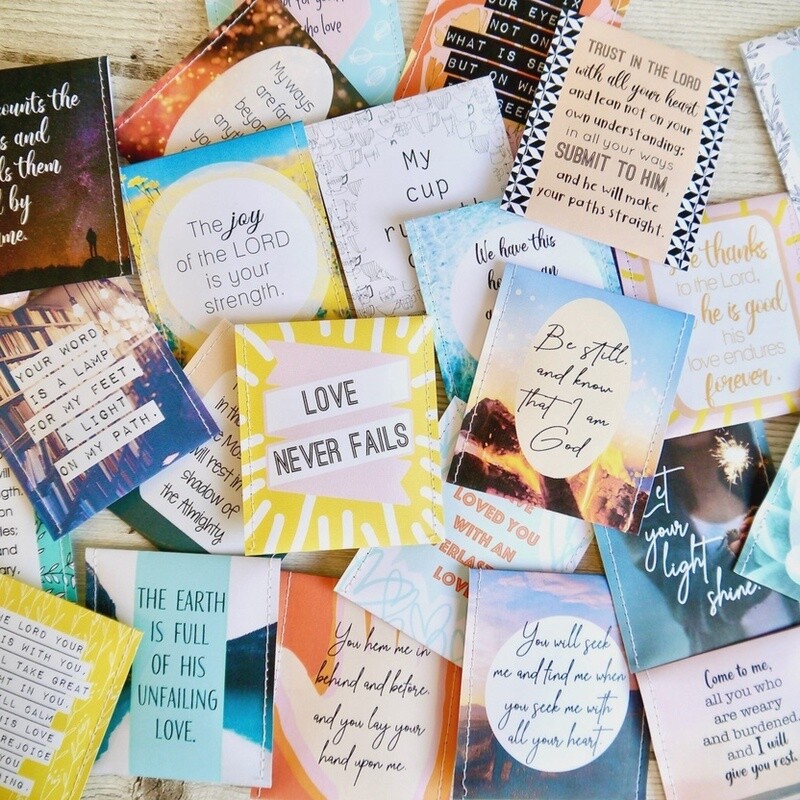 who love
OUR EYE
NOT ON
WHAT IS SE
BUT ON WH
SEE
TRUST IN THE LORD
with all your heart
and lean not on your
own understanding;
in all your ways
SUBMIT TO HIM,
and he will make
your paths straight.
counts the
and
them
by
My ways
are far
beyon
My
cup
The joy
of the LORD
is your
strength.
We have this
an
thanks
to the Lord,
he is good
his
love endures
forever.
YOUR WORD
IS A LAMP
FOR MY FEET,
A LIGHT
ON MY PATH.
in the
will rest in
shadow of
the Almighty
LOVE
NEVER FAILS
Be still,
and know
that I am
God
LOVED YOU
WITH AN
LOVE
Let
your
light
shine.
THE EARTH
IS FULL
OF HIS
UNFAILING
LOVE.
LORD YOUR
IS WITH YOU,
TAKE GREAT
IN YOU.
CALM
LOVE
REJOICE
YOU
ING.
You hem me in
behind and before,
and you lay your
hand upon me.
You will seek
me and find me when
you seek me with
all your heart.
Come to me,
all you who
are weary
and burdened,
and I will
give you rest.